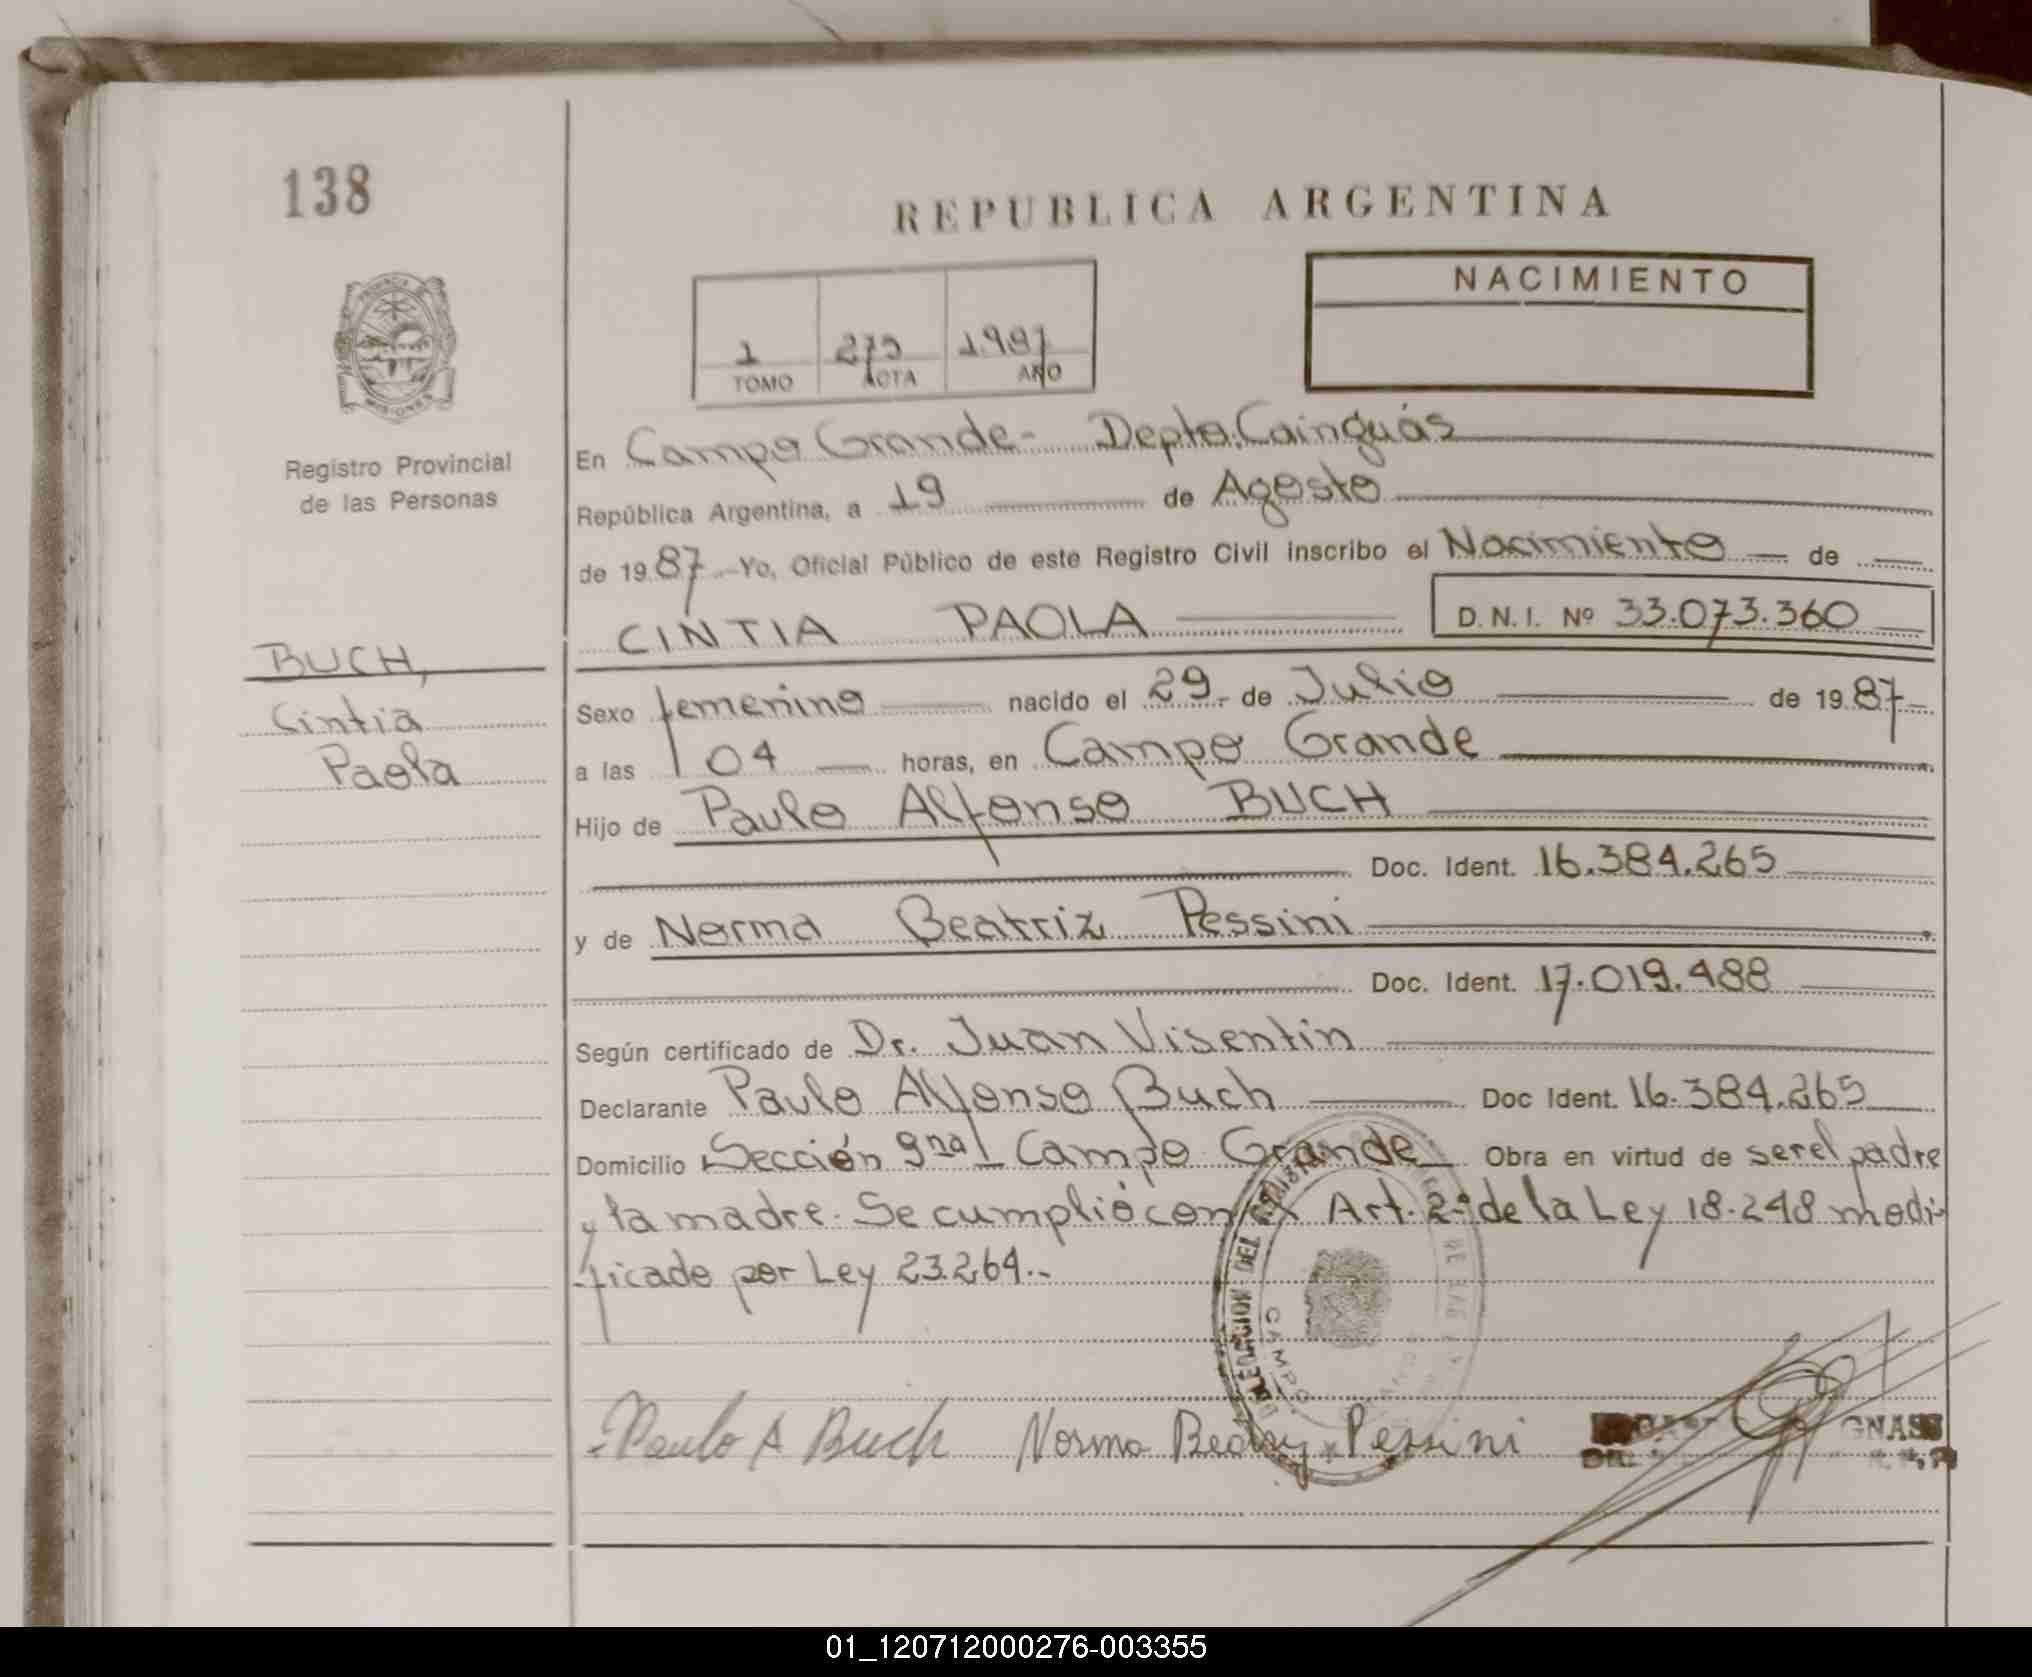 138
REPUBLICA ARGENTINA
NACIMIENTO
1 275 1.987
TOMO ACTA AÑO
PROVINCIA DE MISIONES
Registro Provincial
de las Personas
En Campo Grande- Depto. Cainguás
República Argentina, a 19 de Agosto
de 1987 Yo, Oficial Público de este Registro Civil inscribo el Nacimiento de
CINTIA PAOLA D.N.I. Nº 33.073.360
BUCH,
Cintia
Paola
Sexo femenino nacido el 29 de Julio de 1987
a las 04 horas, en Campo Grande
Hijo de Paulo Alfonso BUCH
Doc. Ident. 16.384.265
y de Norma Beatriz Pessini
Doc. Ident. 17.019.488
Según certificado de Dr. Juan Visentin
Declarante Paulo Alfonso Buch Doc Ident. 16.384.265
Domicilio Sección 9na Campo Grande Obra en virtud de ser el padre
y la madre. Se cumplió con el Art. 2º de la Ley 18.248 modi-
ficado por Ley 23.264.-
DELEGACION DEL REGISTRO DE LAS
CAMPO GRANDE
Paulo A Buch Norma Beatriz Pessini
GNASS
01_120712000276-003355